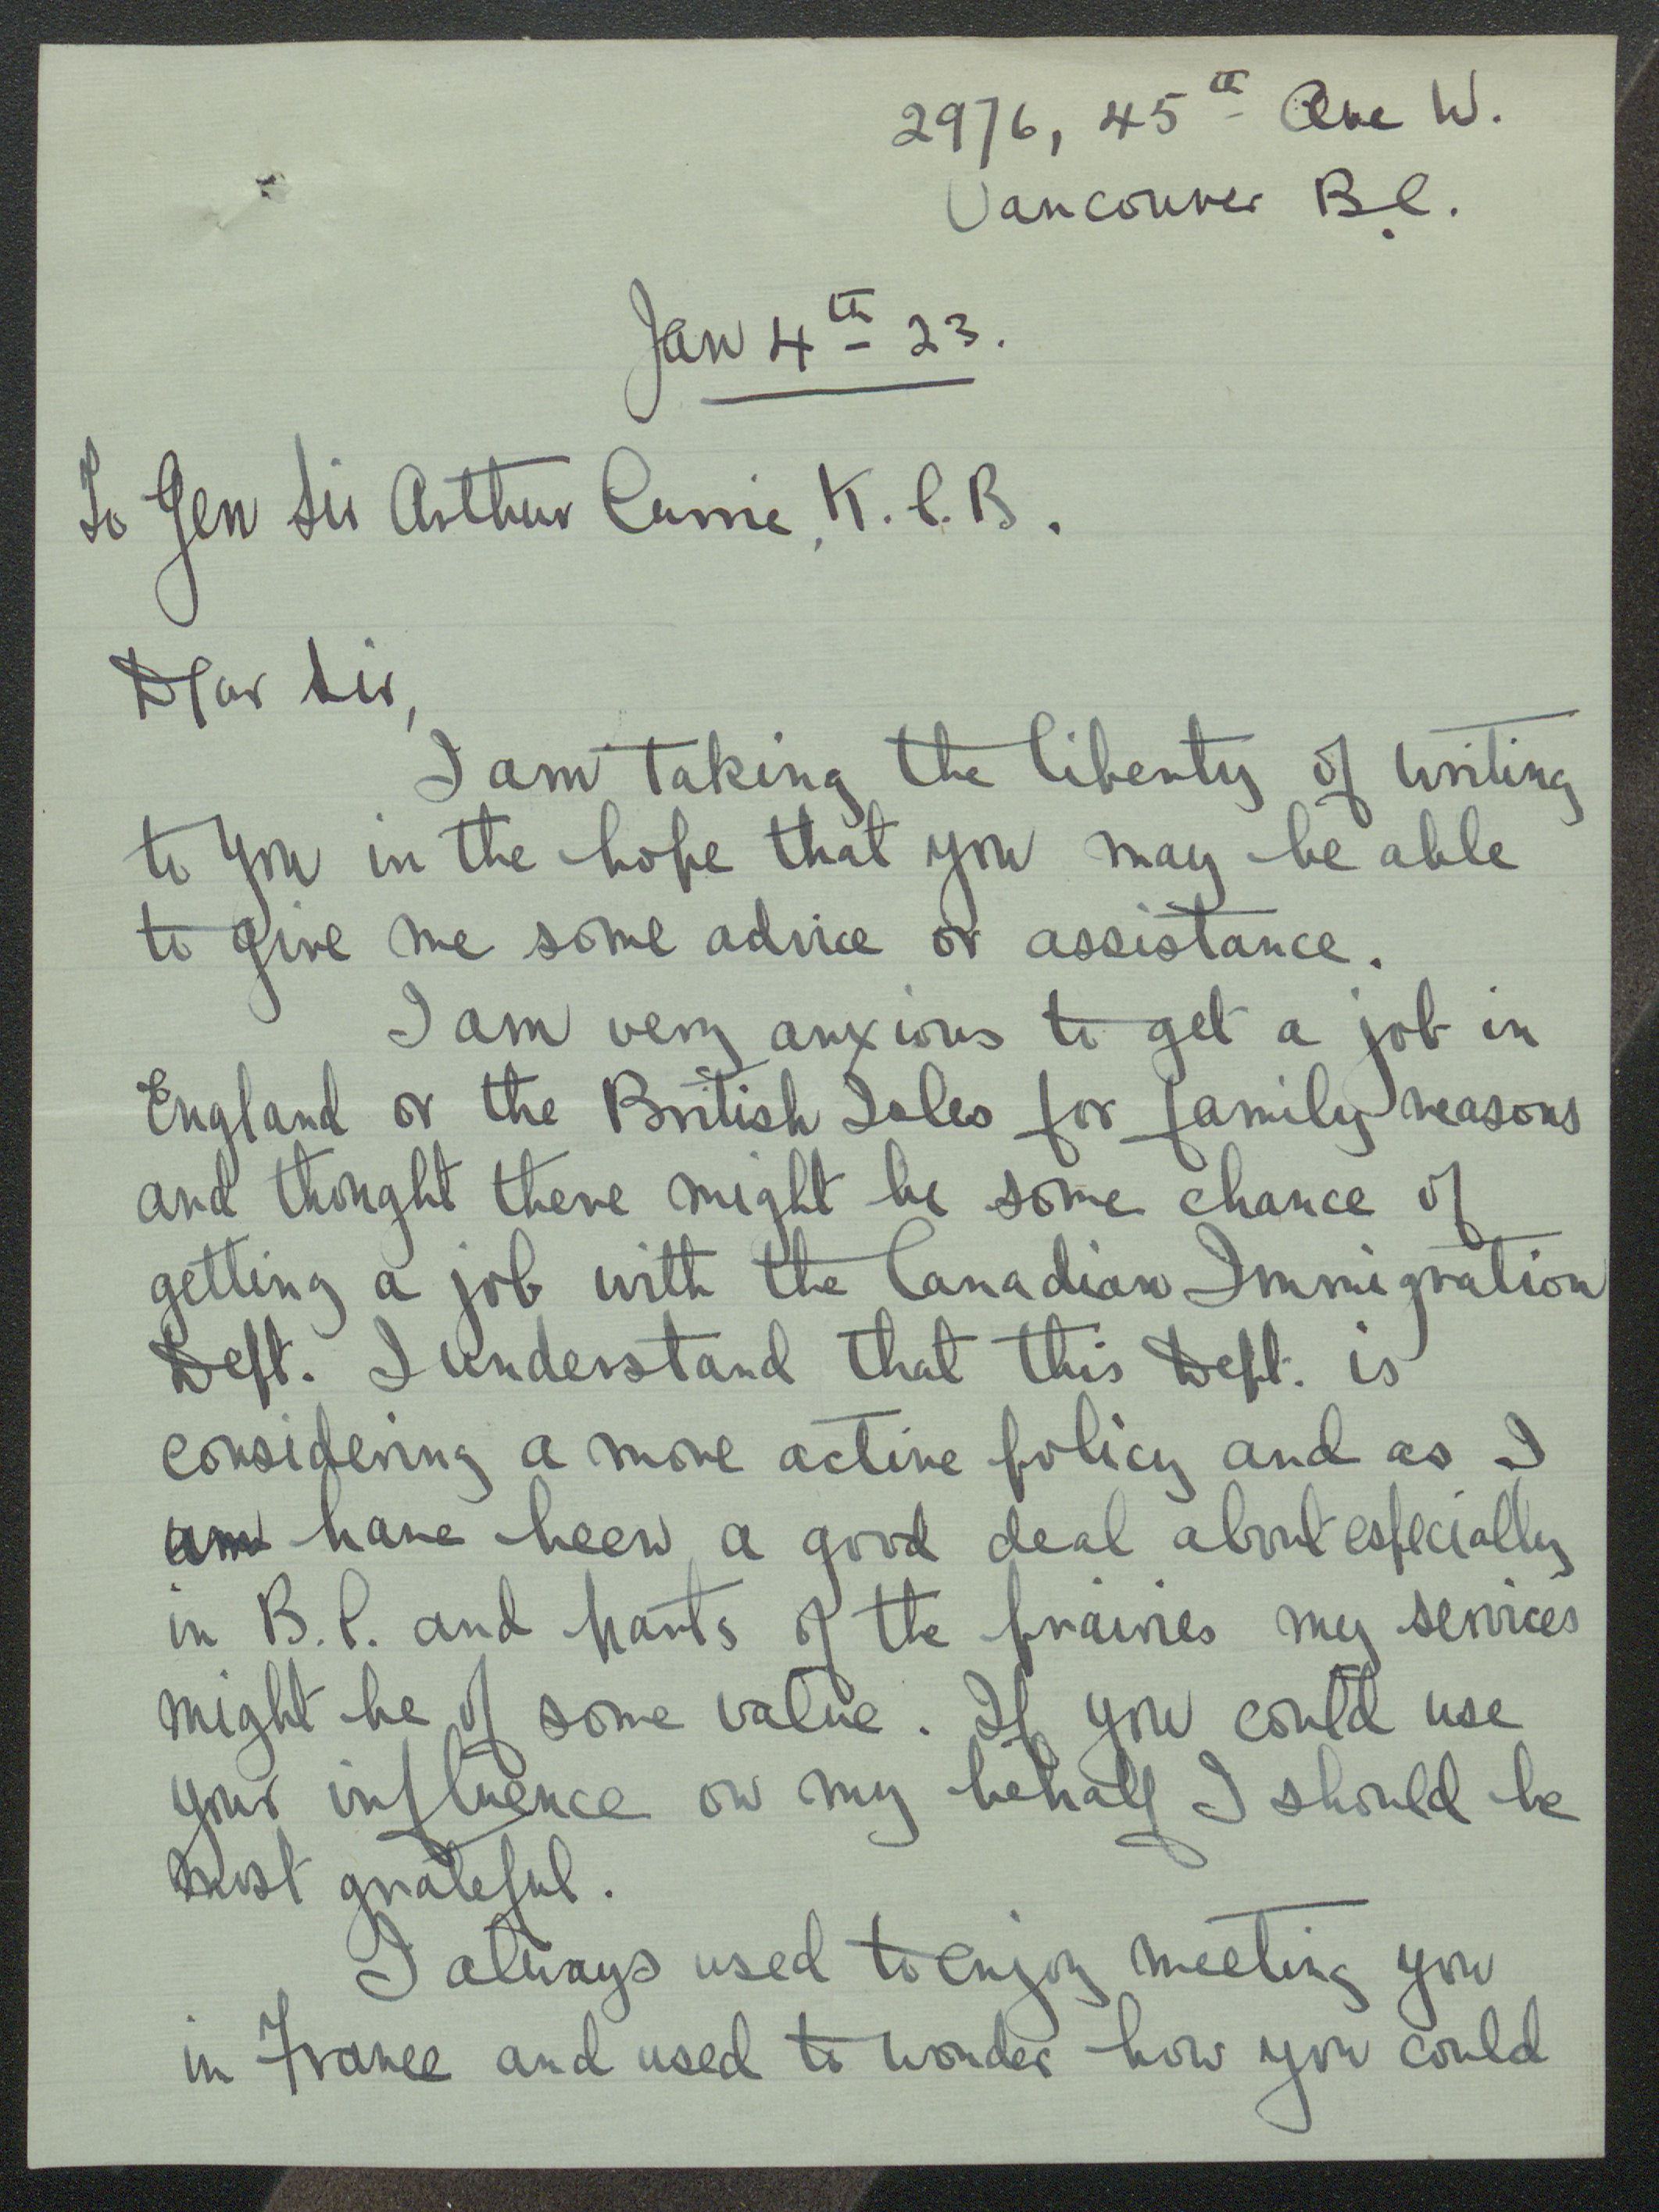 2976, 45th Ave W.
Vancouver B.C.
Jan 4th 23.
To Gen Sir Arthur Currie, K.C.B.
Dear Sir,
I am taking the liberty of writing
to you in the hope that you may be able
to give me some advice or assistance.
I am very anxious to get a job in
England or the British Isles for family reasons
and thought there might be some chance of
getting a job with the Canadian Immigration
Dept. I understand that this Dept. is
considering a more active policy and as I
am have been a good deal about especially
in B.C. and parts of the prairies my services
might be of some value. If you could use
your influence on my behalf I should be
most grateful.
I always used to enjoy meeting you
in France and used to wonder how you could